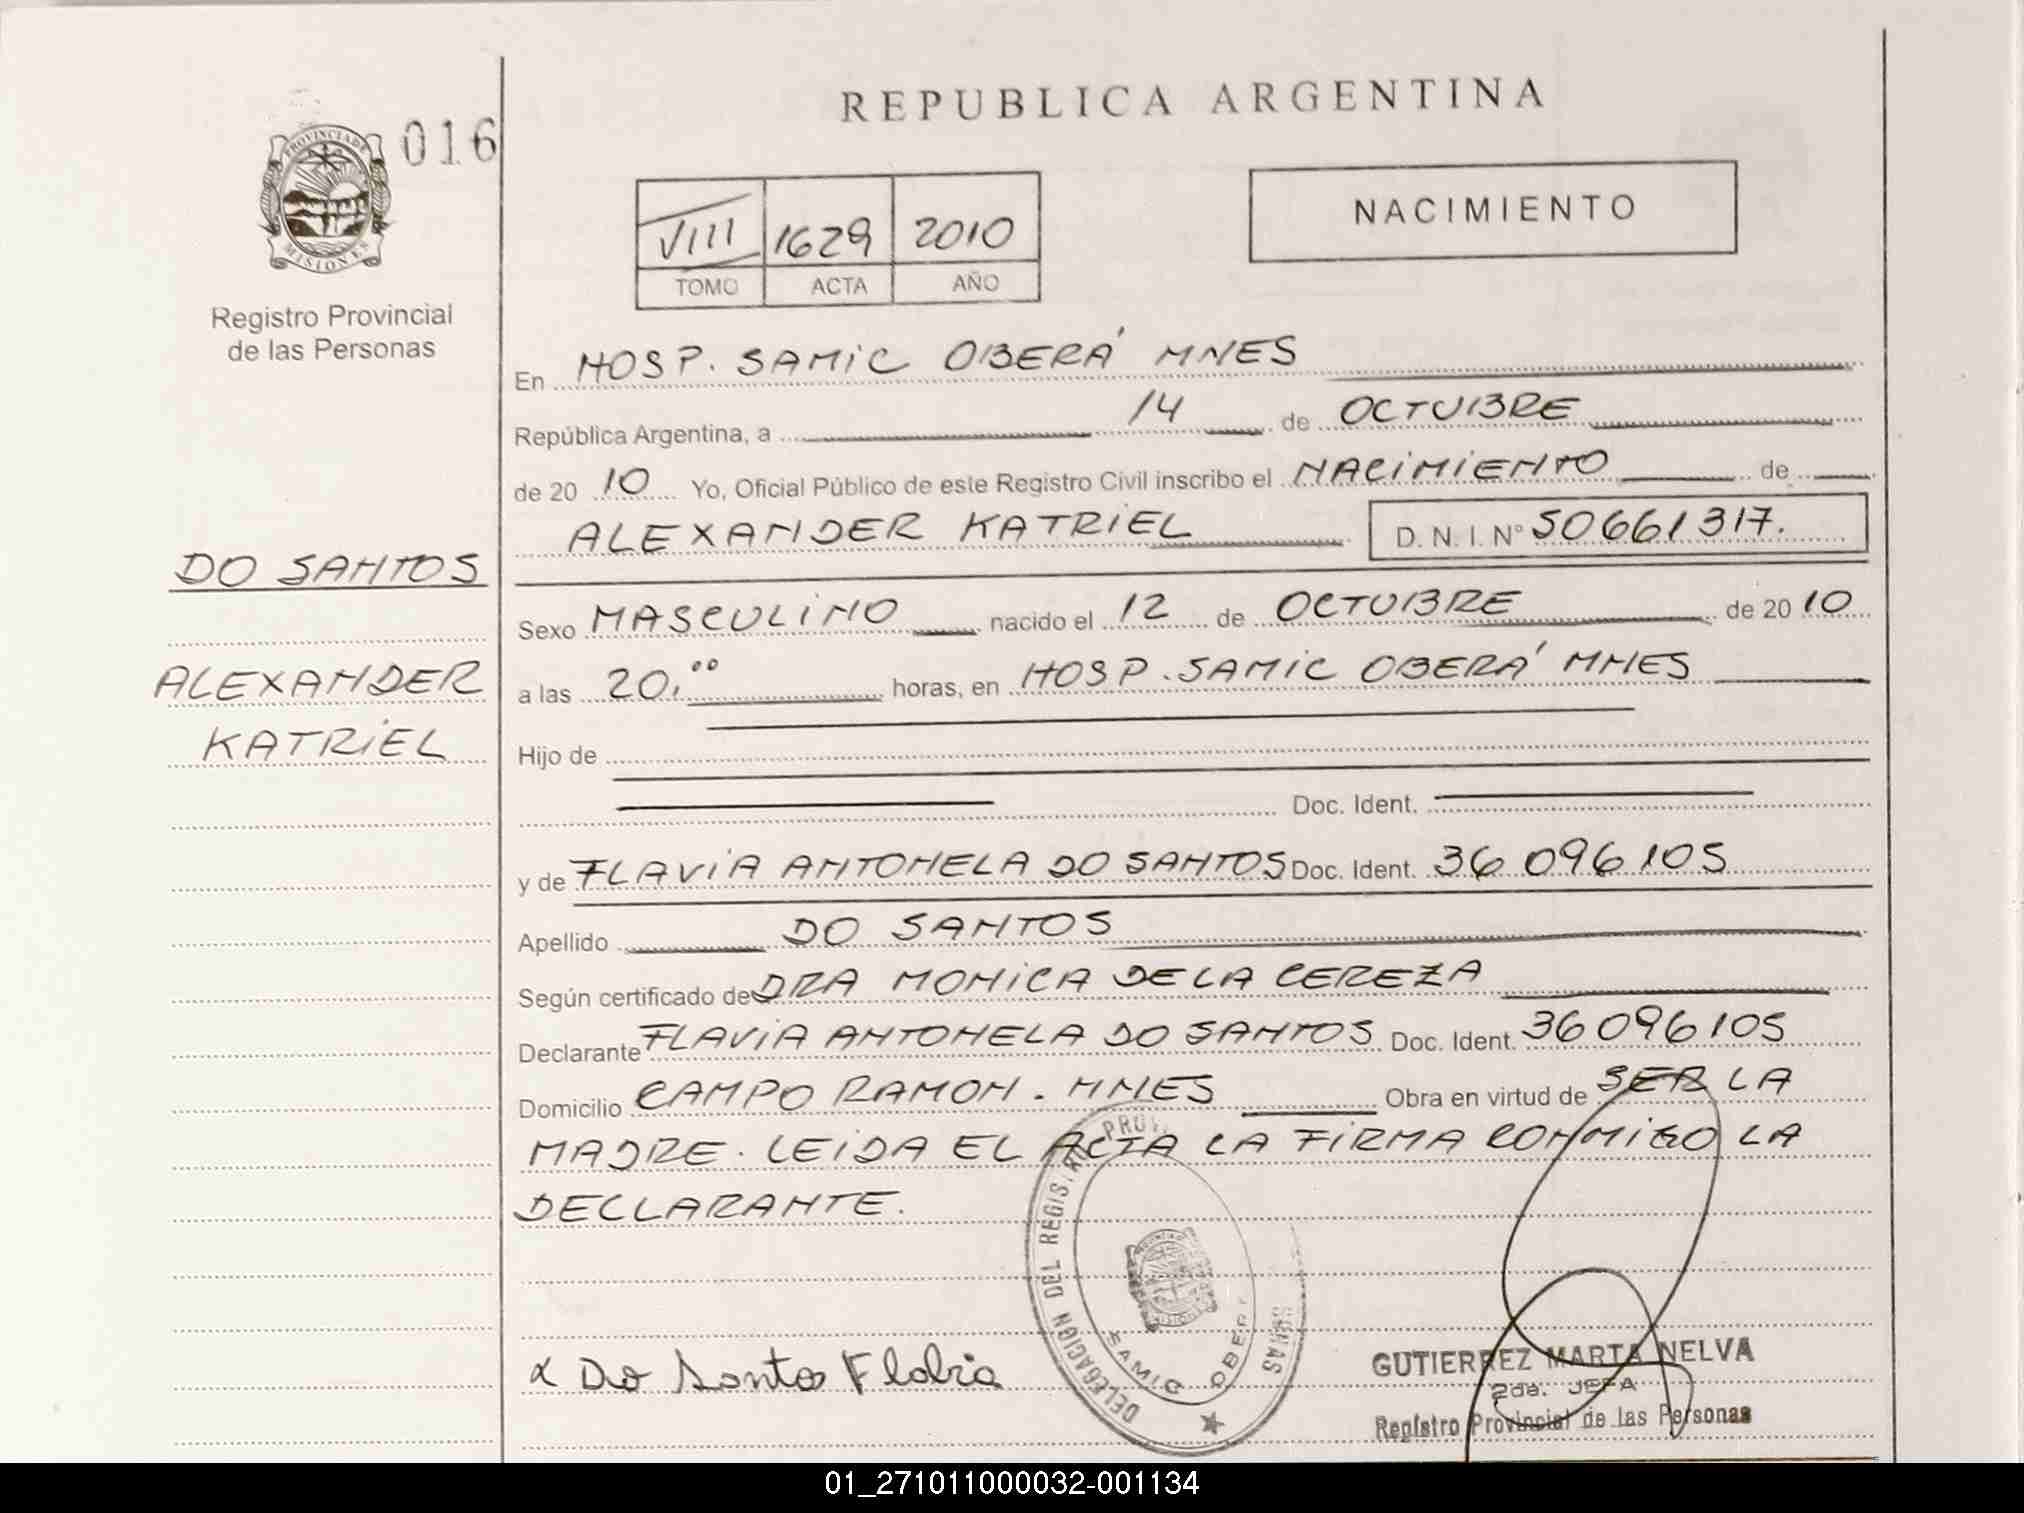 REPUBLICA ARGENTINA
PROVINCIA DE MISIONES
016
Registro Provincial
de las Personas
VIII 1629 2010
TOMO ACTA AÑO
NACIMIENTO
En HOSP. SAMIC OBERÁ MNES
República Argentina, a 14 de OCTUBRE
de 20 10 Yo, Oficial Público de este Registro Civil inscribo el NACIMIENTO de
ALEXANDER KATRIEL D. N. I. Nº 50661317.
DO SANTOS
ALEXANDER
KATRIEL
Sexo MASCULINO nacido el 12 de OCTUBRE de 20 10
a las 20,°° horas, en HOSP. SAMIC OBERÁ MNES
Hijo de
Doc. Ident.
y de FLAVIA ANTONELA DO SANTOS Doc. Ident. 36 096105
Apellido DO SANTOS
Según certificado de DRA MONICA DE LA CEREZA
Declarante FLAVIA ANTONELA DO SANTOS Doc. Ident. 36 096105
Domicilio CAMPO RAMON. MNES Obra en virtud de SER LA
MADRE. LEIDA EL ACTA LA FIRMA CONMIGO LA
DECLARANTE.
DELEGACION DEL REGISTRO PROV. SONAS
SAMIC OBER
x Do Santos Flabia
GUTIERREZ MARTA NELVA
2da. JEFA
Registro Provincial de las Personas
01_271011000032-001134